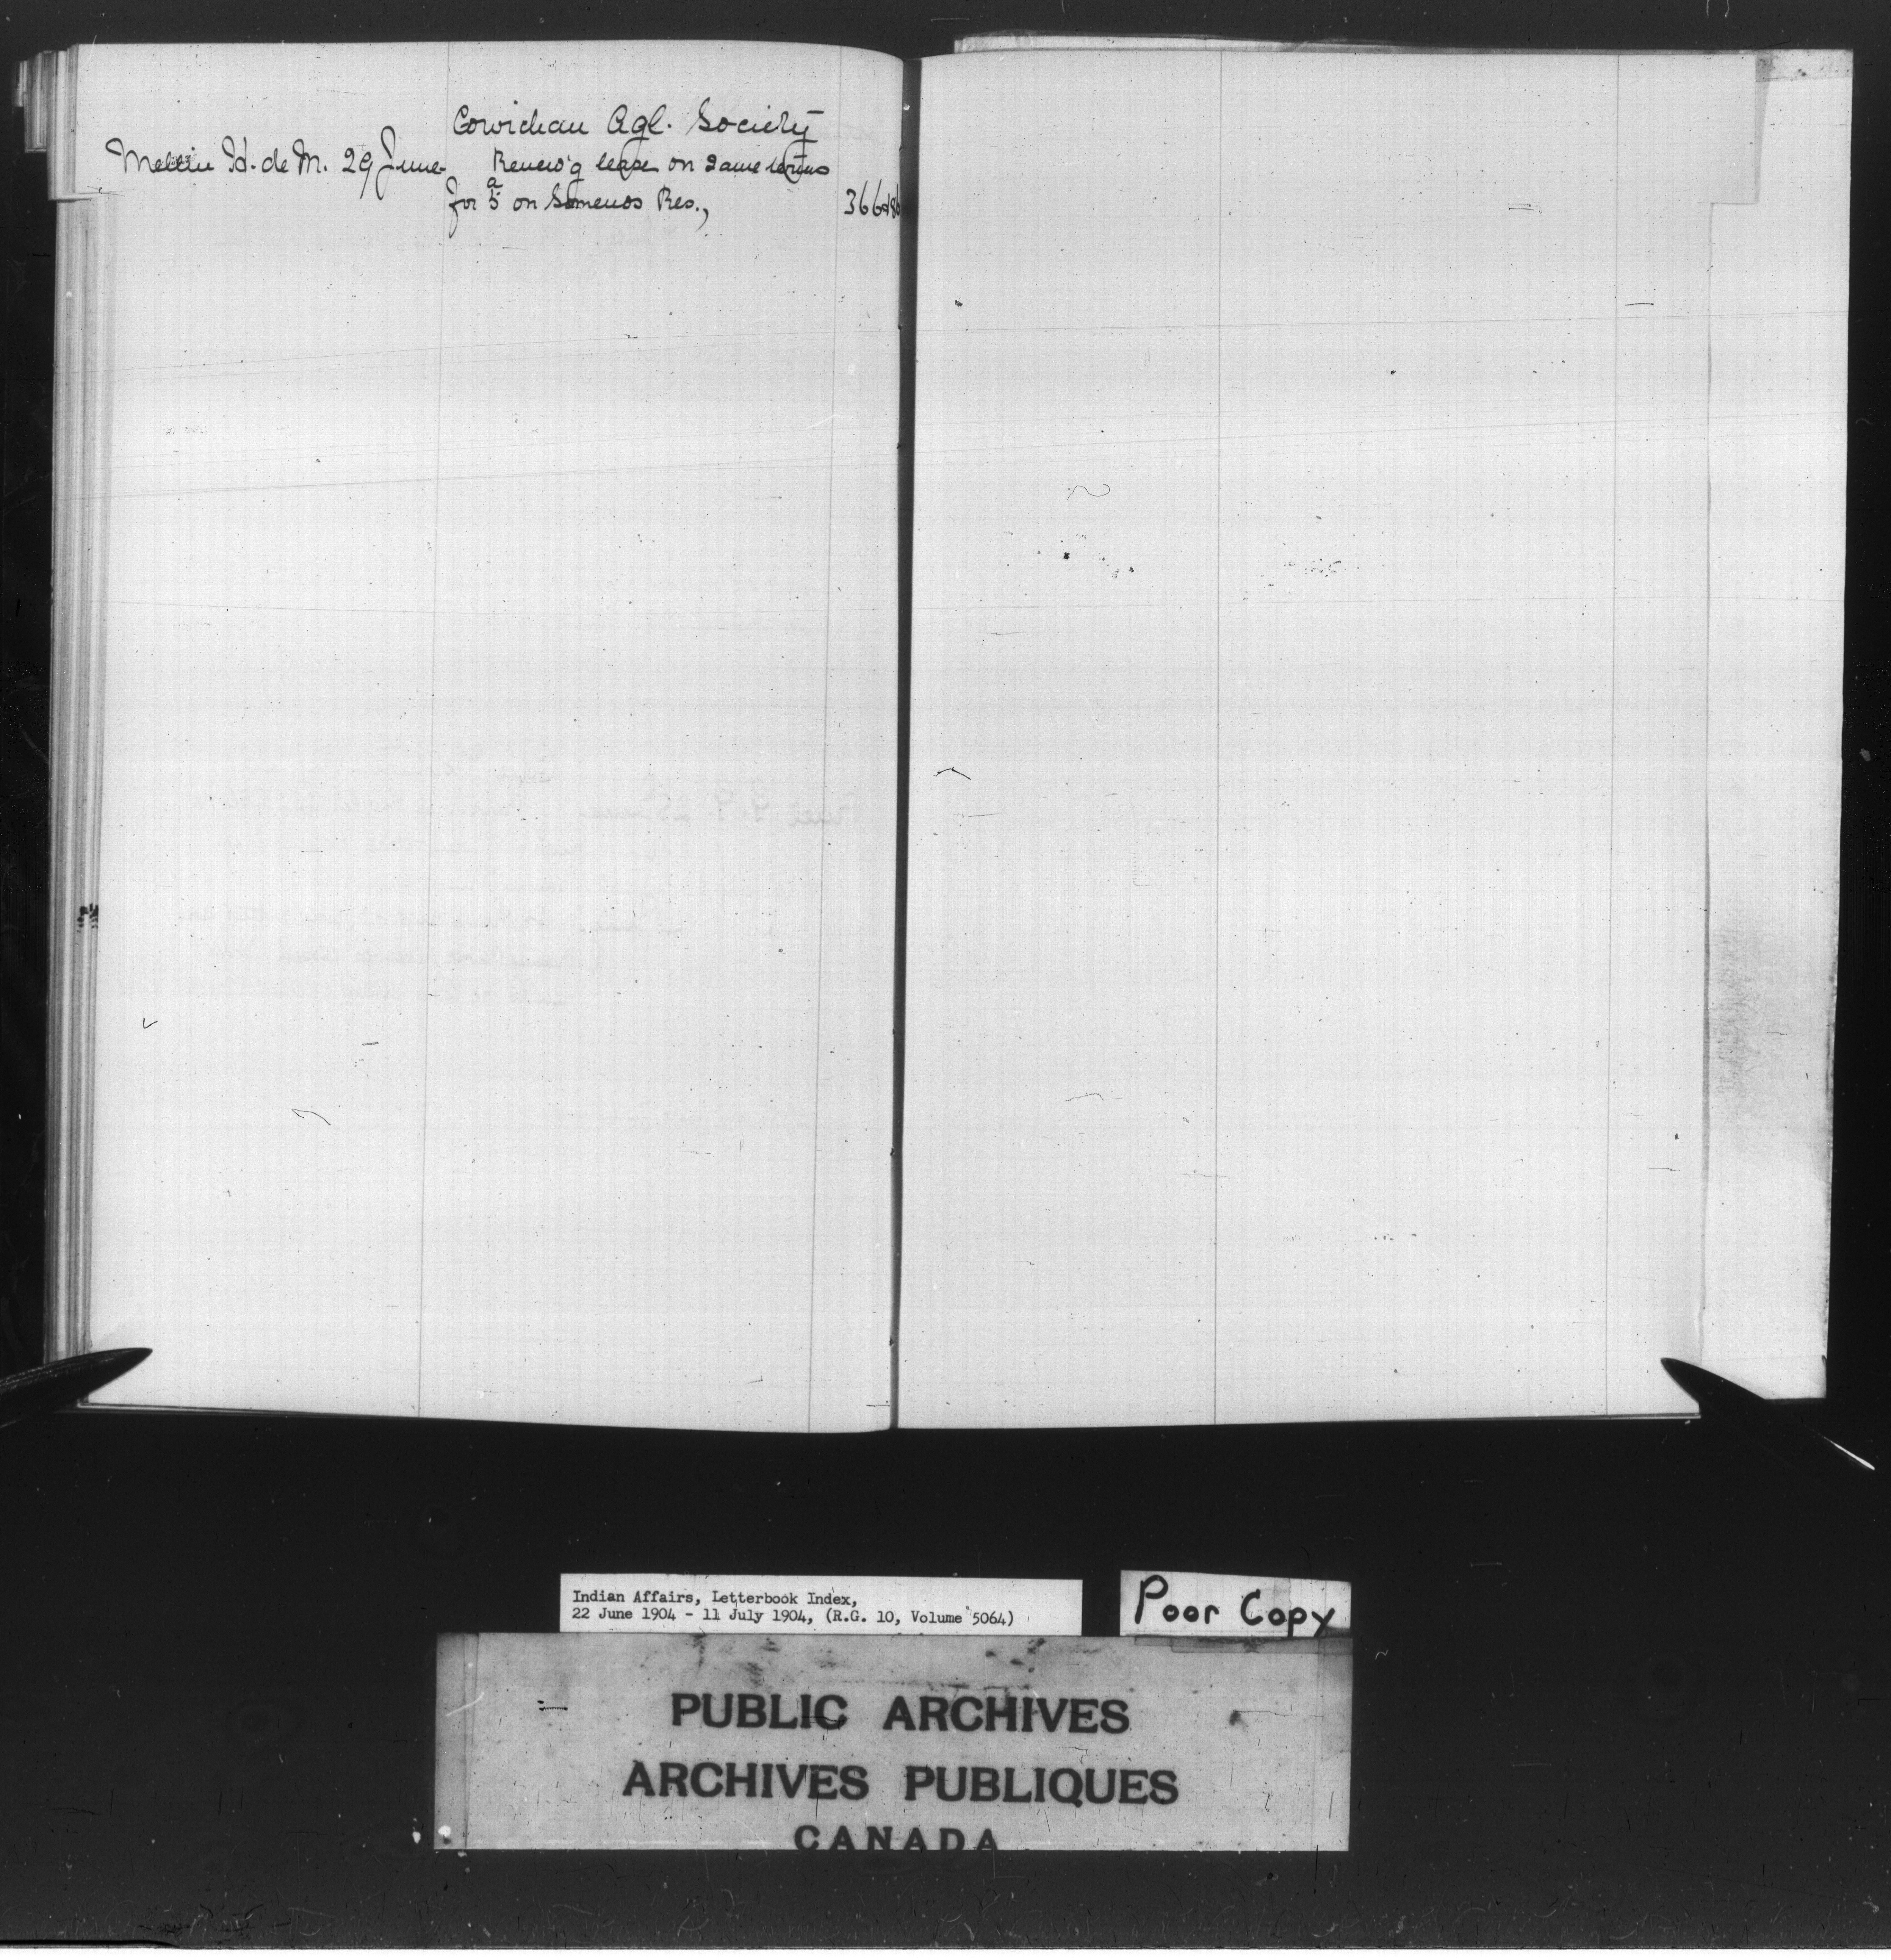 Cowichan Agl. Society
Mellin Hd. de M. 29 June. Renew'g lease on same terms
for 5 a on Somenos Res., 366
Indian Affairs, Letterbook Index,
22 June 1904 - 11 July 1904, (R.G. 10, Volume 5064)
Poor Copy
PUBLIC ARCHIVES
ARCHIVES PUBLIQUES
CANADA